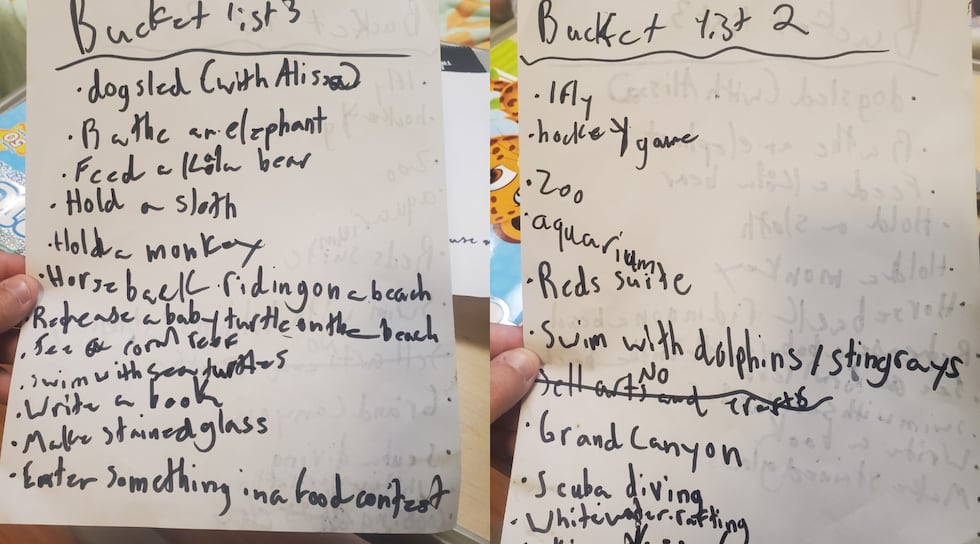 Bucket list 3
• dogsled (with Alissa)
• Bathe an elephant
• Feed a Kola bear
• Hold a sloth
• Hold a monkey
• Horse back riding on a beach
• Refrense a baby turtle on the beach
• See a corn reef
• Swim with sea turtles
• Write a book
• Make stained glass
• Enter something in a food contest
Bucket list 2
• Ifly
• hockey game
• Zoo
• aquarium
• Reds suite
• Swim with dolphins / stingrays
Sell arts and crafts No
• Grand Canyon
• Scuba diving
• White water rafting